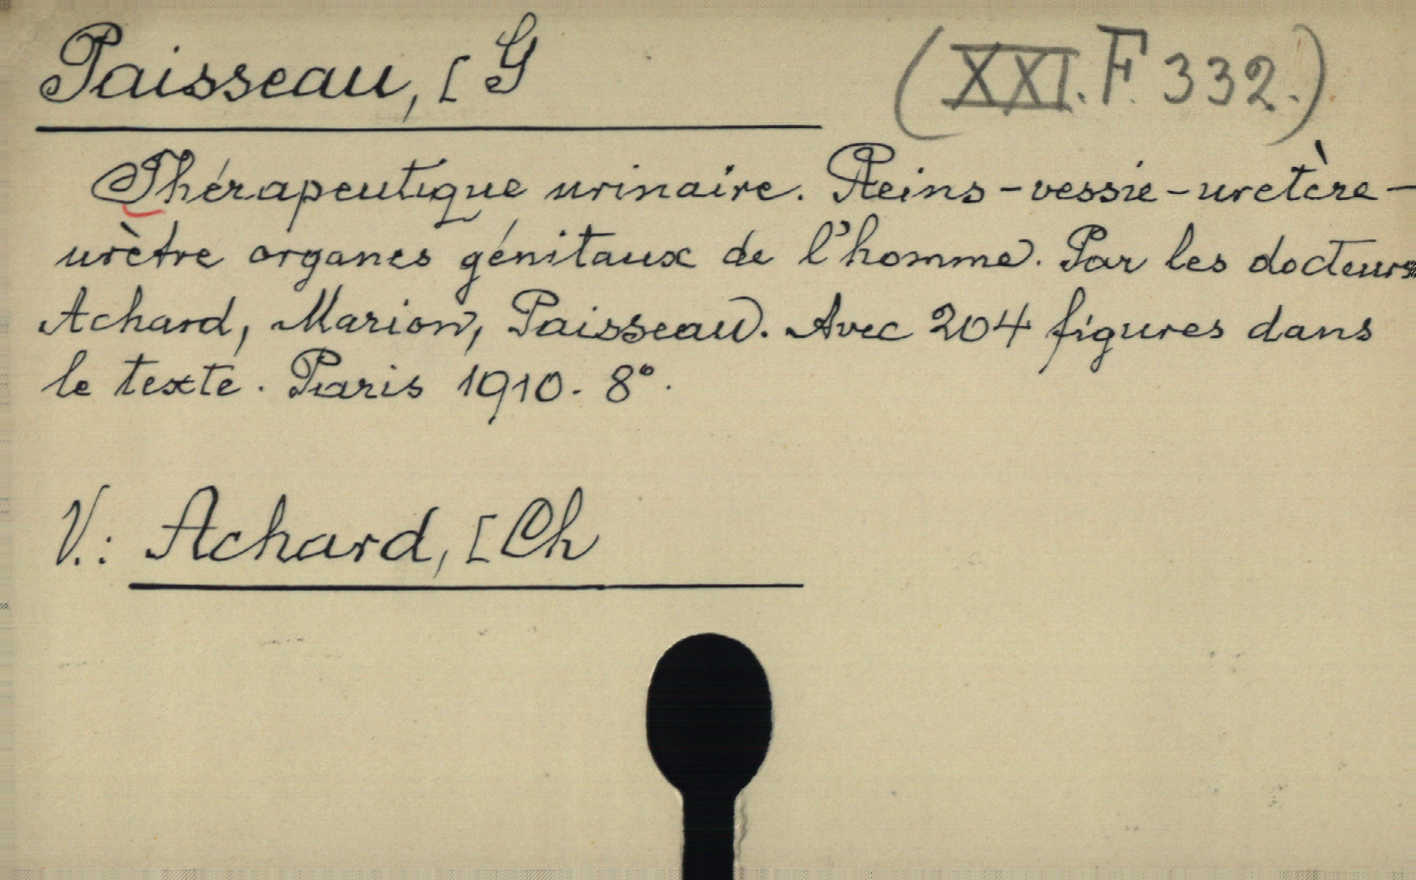 Paisseau, [G
(XXI. F. 332.)
Thérapeutique urinaire. Reins - vessie - uretère -
urètre organes génitaux de l'homme. Par les docteurs
Achard, Marion, Paisseau. Avec 204 figures dans
le texte. Paris 1910. 8°.
V.: Achard, [Ch